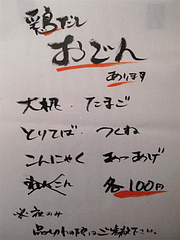 鶏だし
おでん
あります
大根 たまご
とりてば つくね
こんにゃく あつあげ
各100円
※夜のみ
品切れの時はご容赦下さい。